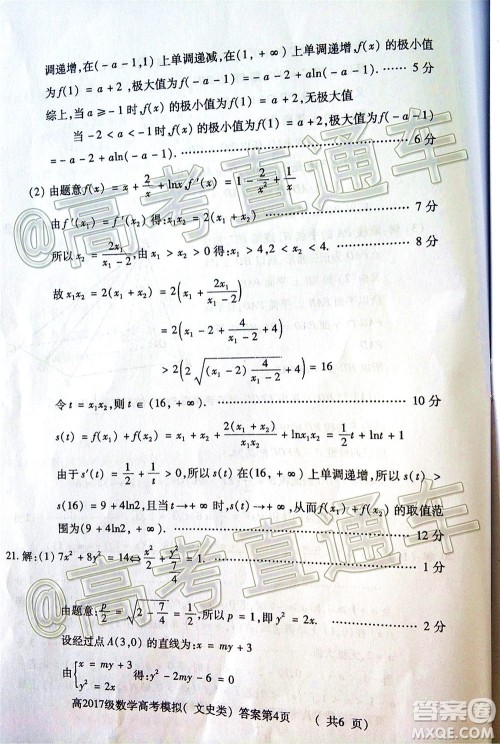 调递增,在(-a-1,1)上单调递减,在(1,+∞)上单调递增,f(x)的极小值
为f(1)=a+2,极大值为f(-a-1)=-a-2+aln(-a-1).……… 5分
综上,当a≥-1时,f(x)的极小值为f(1)=a+2,无极大值
当-2<a<-1时,f(x)的极小值为f(1)=a+2,极大值为f(-a-1)
=-a-2+aln(-a-1).……… 6分
(2)由题意f(x)=x+2/x+lnx,f′(x)=1-2/x²+1/x
由f′(x₁)=f′(x₂)得:x₁x₂=2(x₁+x₂)……… 7分
所以x₂=2x₁/(x₁-2),由x₁>x₂>0得:x₁>4,2<x₂<4.……… 8分
故x₁x₂=2(x₁+x₂)=2(x₁+2x₁/(x₁-2))
=2(x₁-2+4/(x₁-2)+4)
>2(2√((x₁-2)4/(x₁-2))+4)=16
令t=x₁x₂,则t∈(16,+∞).……… 10分
s(t)=f(x₁)+f(x₂)=x₁+x₂+2(x₁+x₂)/(x₁x₂)+lnx₁x₂=1/2t+lnt+1
由于s′(t)=1/2+1/t>0,所以s(t)在(16,+∞)上单调递增,所以s(t)>
s(16)=9+4ln2,且当t→+∞时,s(t)→+∞,从而f(x₁)+f(x₂)的取值范
围为(9+4ln2,+∞)……… 12分
21.解:(1)7x²+8y²=14⇔x²/2+y²/(7/4)=1.……… 1分
由题意:p/2=√(2-7/4)=1/2,所以p=1,即y²=2x.……… 2分
设经过点A(3,0)的直线为:x=my+3
由{x=my+3 y²=2x得:y²-2my-6=0
高2017级数学高考模拟(文史类)答案第4页 (共6页)
@高考直通车
@高考直通车
答案圈
MXQE.COM